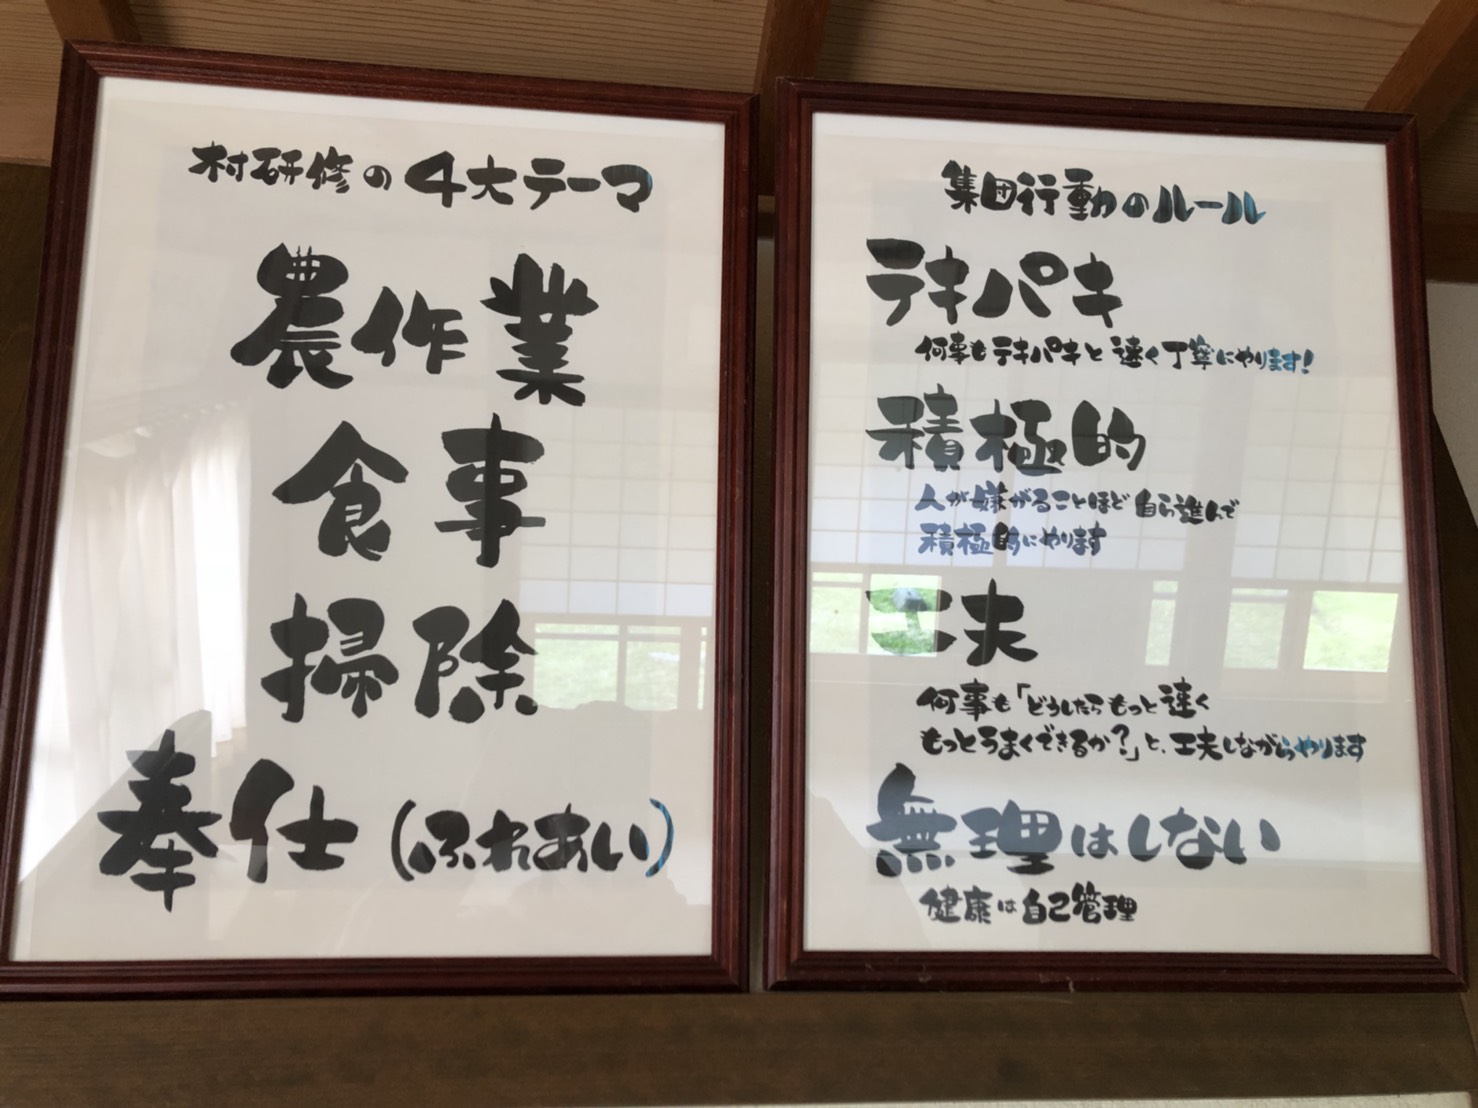 村研修の4大テーマ
農作業
食事
掃除
奉仕(ふれあい)
集団行動のルール
テキパキ
何事もテキパキと速く丁寧にやります!
積極的
人が嫌がることほど自ら進んで
積極的にやります
工夫
何事も「どうしたらもっと速く
もっとうまくできるか?」と、工夫しながらやります
無理はしない
健康は自己管理